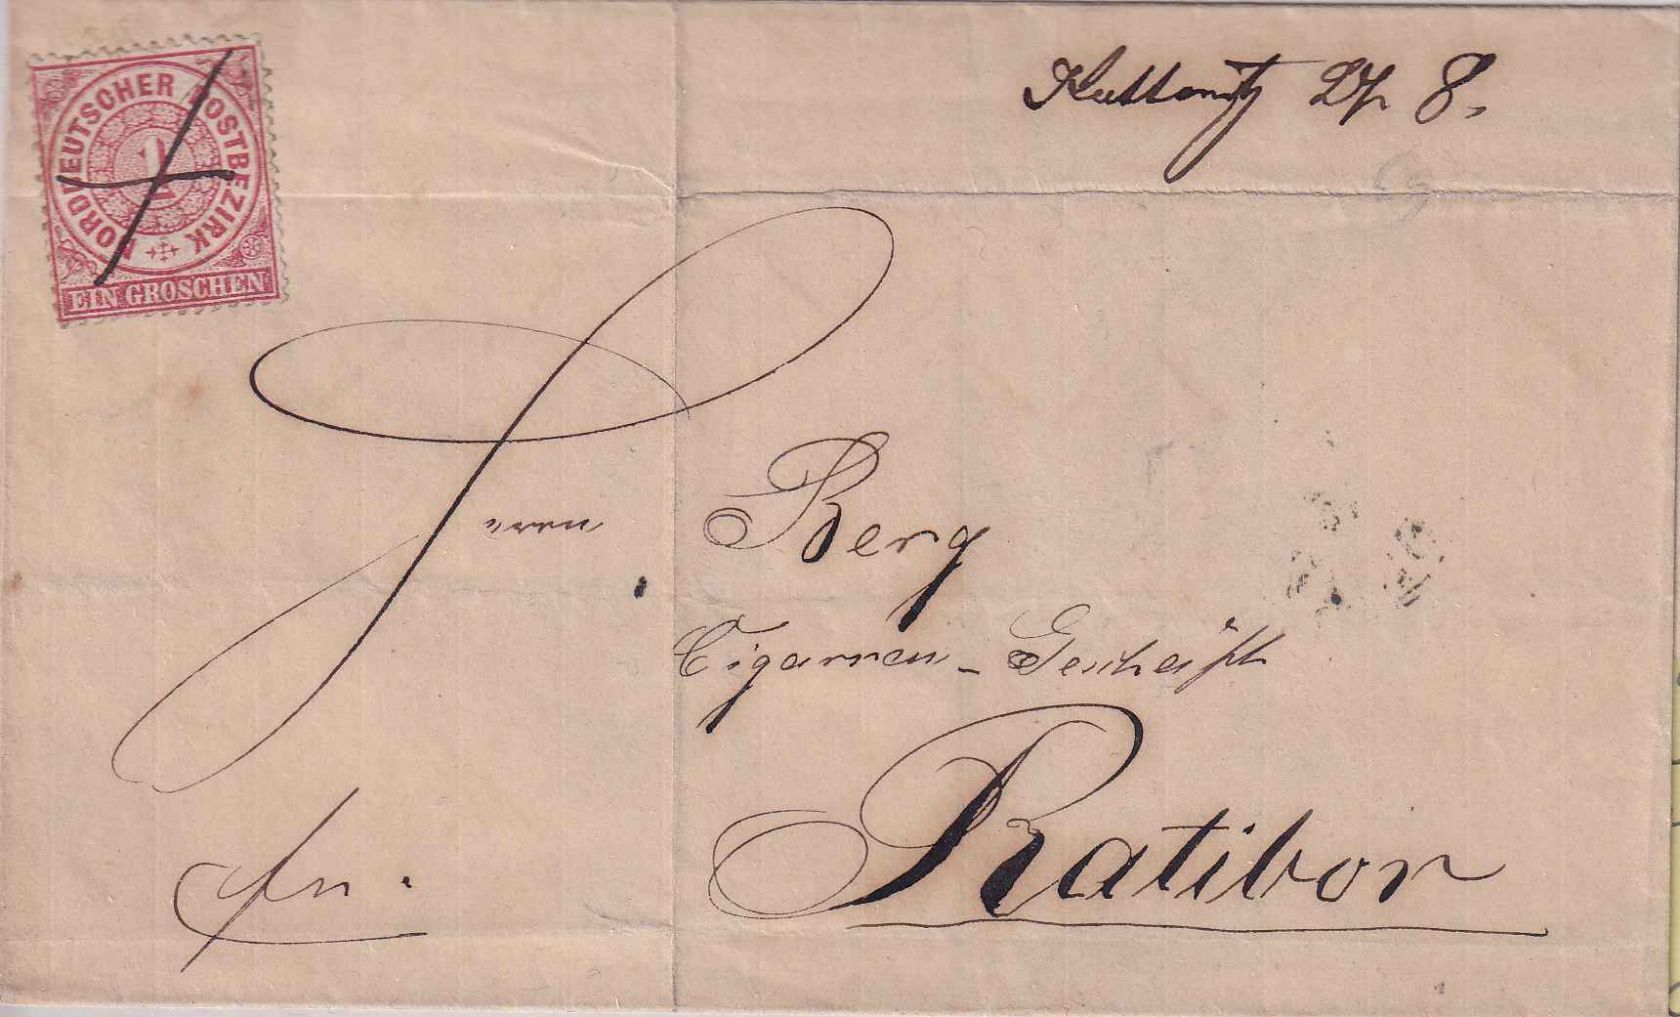 NORDDEUTSCHER POSTBEZIRK
1
EIN GROSCHEN
Kattowitz 8.
Herrn Berg
Cigarren-Geschäft
Ratibor
fr.